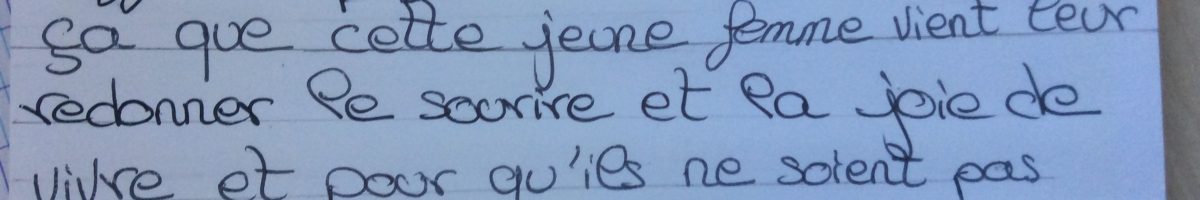 ça que cette jeune femme vient leur
redonner le sourire et la joie de
vivre et pour qu'ils ne soient pas